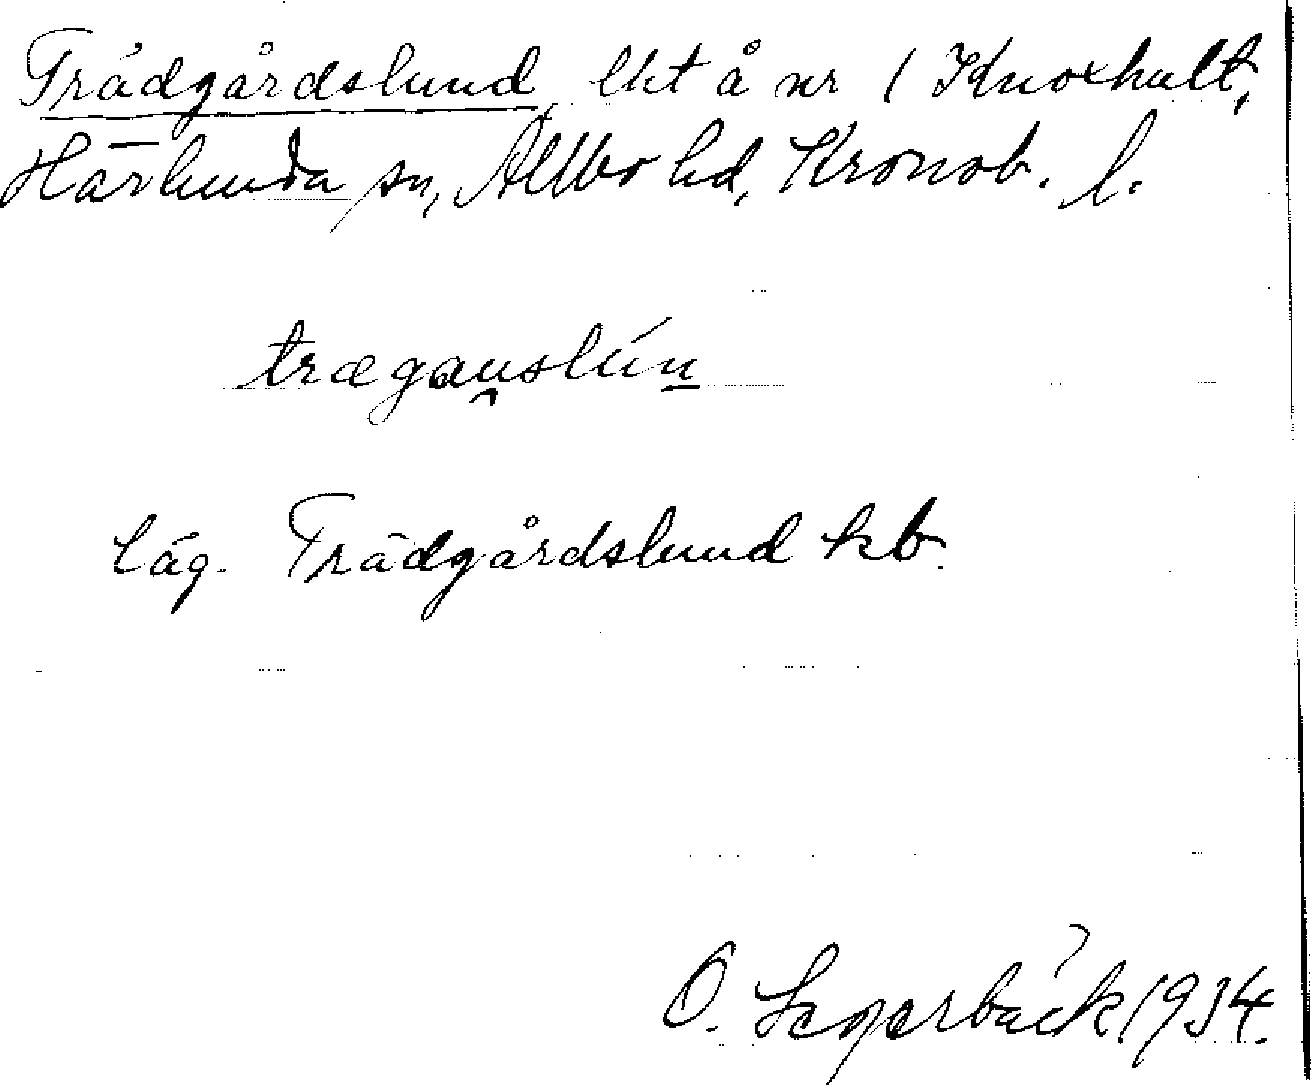 Trädgårdslund, lht å nr 1 Knoxhult,
Härlunda sn, Allbo hd, Kronob. l.
trægau̯slún̲
Läg. Trädgårdslund kb.
O. Lagerbäck 1934.